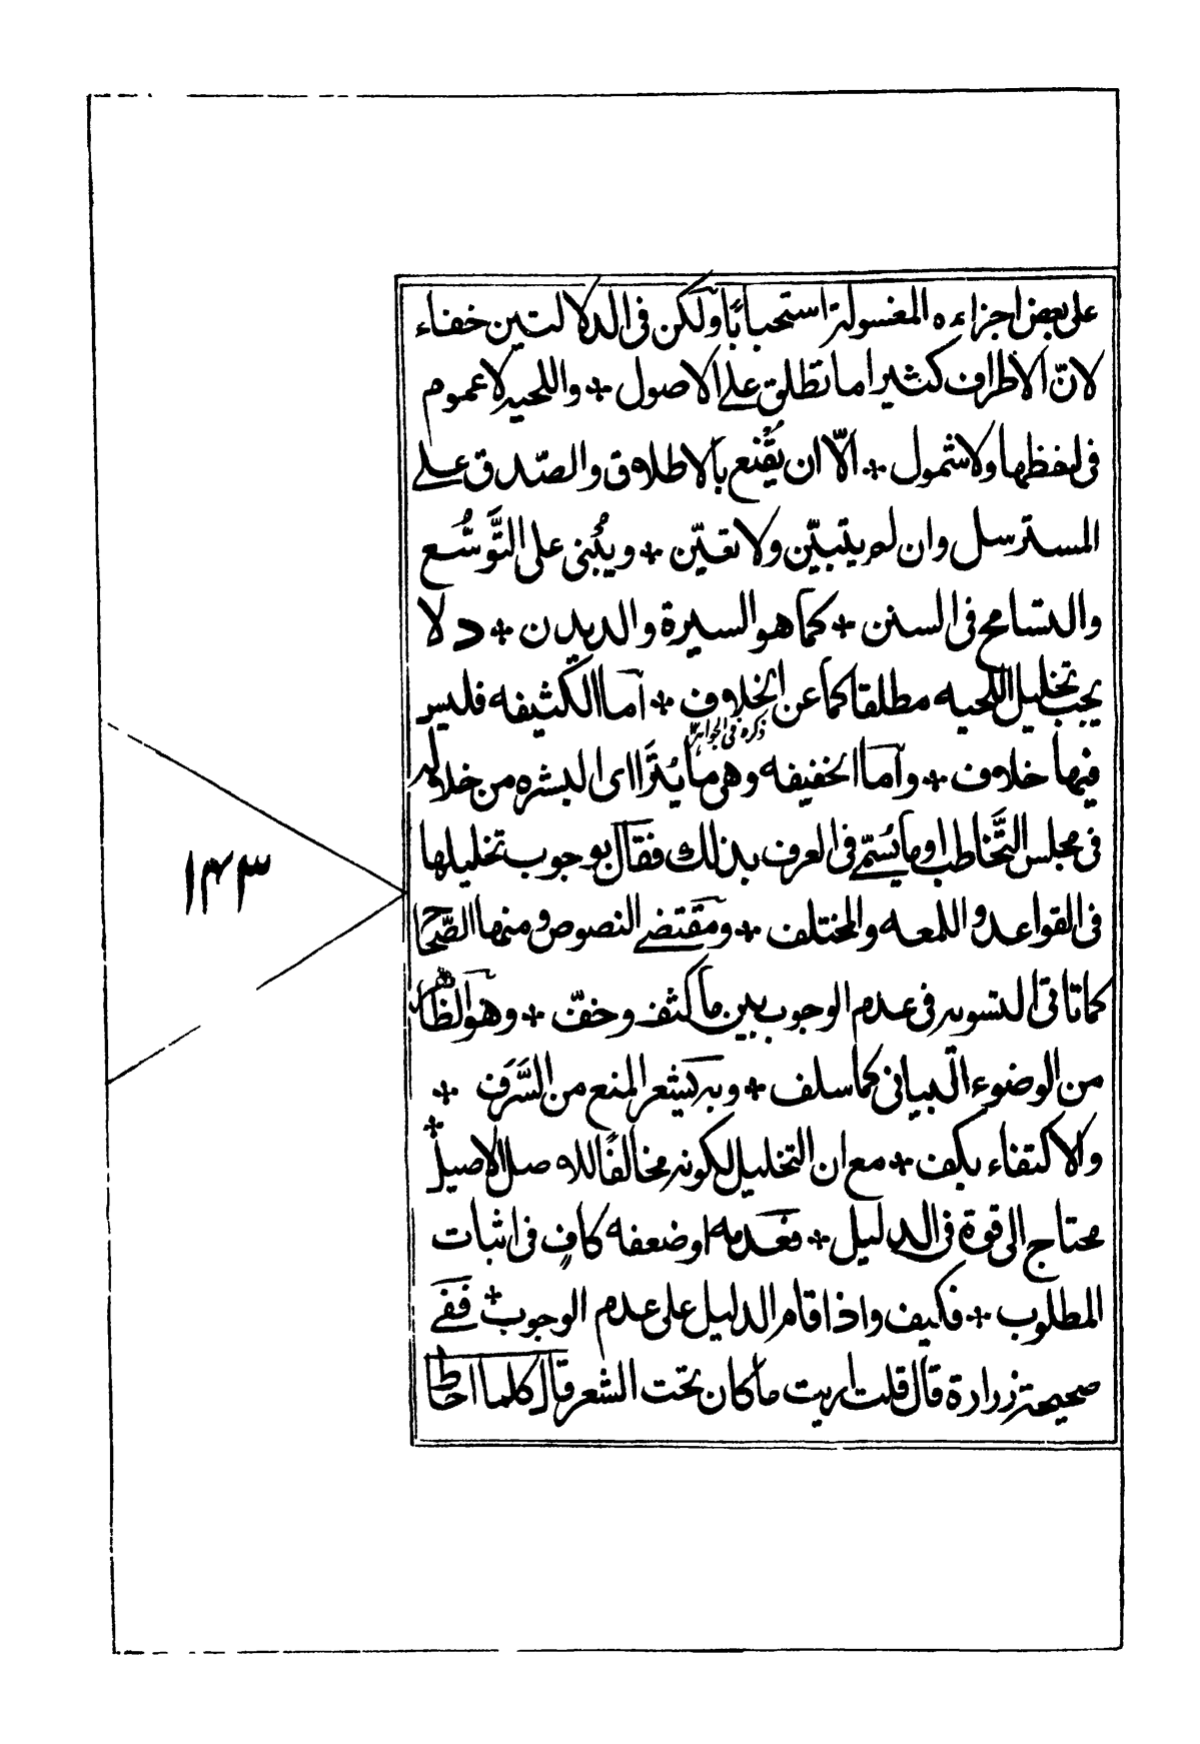 على بعض اجزاءه المغسولة استحبابًا ولكن فى الدلالتين خفاء
لانّ الاطراف كثيرا ما تطلق على الاصول ✢ واللحية لا عموم
فى لفظها ولا شمول ✢ الّا ان يُقنع بالاطلاق والصّدق على
المسترسل وان لم يتبيّن ولا تعيّن ✢ ويُبنى على التَّوسُّع
والتسامح فى السنن ✢ كما هو السيرة والديدن ✢ د لا
يجب تخليل اللحيه مطلقا كما عن الخلاف ✢ اما الكثيفه فليس
فيها خلاف ✢ واما الخفيفه وهى ما يُترَاای البشره من خلاله
ذكره فى الجواهر
فى مجلس التَّخاطب او ما يُسمّى فى العرف بذلك فقال بوجوب تخليلها
فى القواعد واللمعه والمختلف ✢ ومقتضى النصوص ومنها الصّحاح
كما تاتى التسوية فى عدم الوجوب بين ما كثف وخفّ ✢ وهو الظّاهر
من الوضوء البيانى كما سلف ✢ وبه يشعر المنع من السَّرَف ✢
والاكتفاء بكف ✢ مع ان التخليل لكونه مخالفًا للاصل الاصيل ✢
محتاج الى قوة فى الدليل ✢ فعدمه او ضعفه كافٍ فى اثبات
المطلوب ✢ فكيف واذا قام الدليل على عدم الوجوب ✢ ففى
صحيحة زرارة قال قلت اريت ما كان تحت الشعر قال كلما احاط
۱۴۳